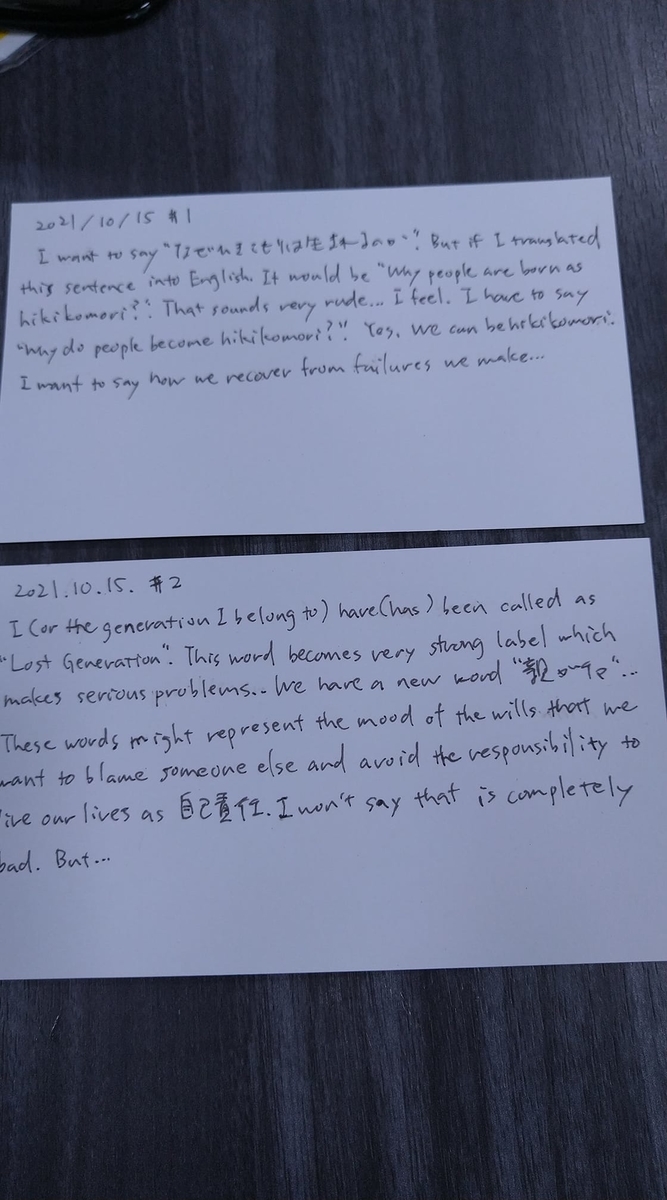 2021/10/15 #1
I want to say "なぜひきこもりは生まれるのか". But if I translated
this sentence into English. It would be "Why people are born as
hikikomori?". That sounds very rude... I feel. I have to say
"Why do people become hikikomori?". Yes, we can be hikikomori.
I want to say how we recover from failures we make...
2021.10.15. #2
I (or the generation I belong to) have(has) been called as
"Lost Generation". This word becomes very strong label which
makes serious problems.. We have a new word "親ガチャ"...
These words might represent the mood of the wills that we
want to blame someone else and avoid the responsibility to
live our lives as 自己責任. I won't say that is completely
bad. But...